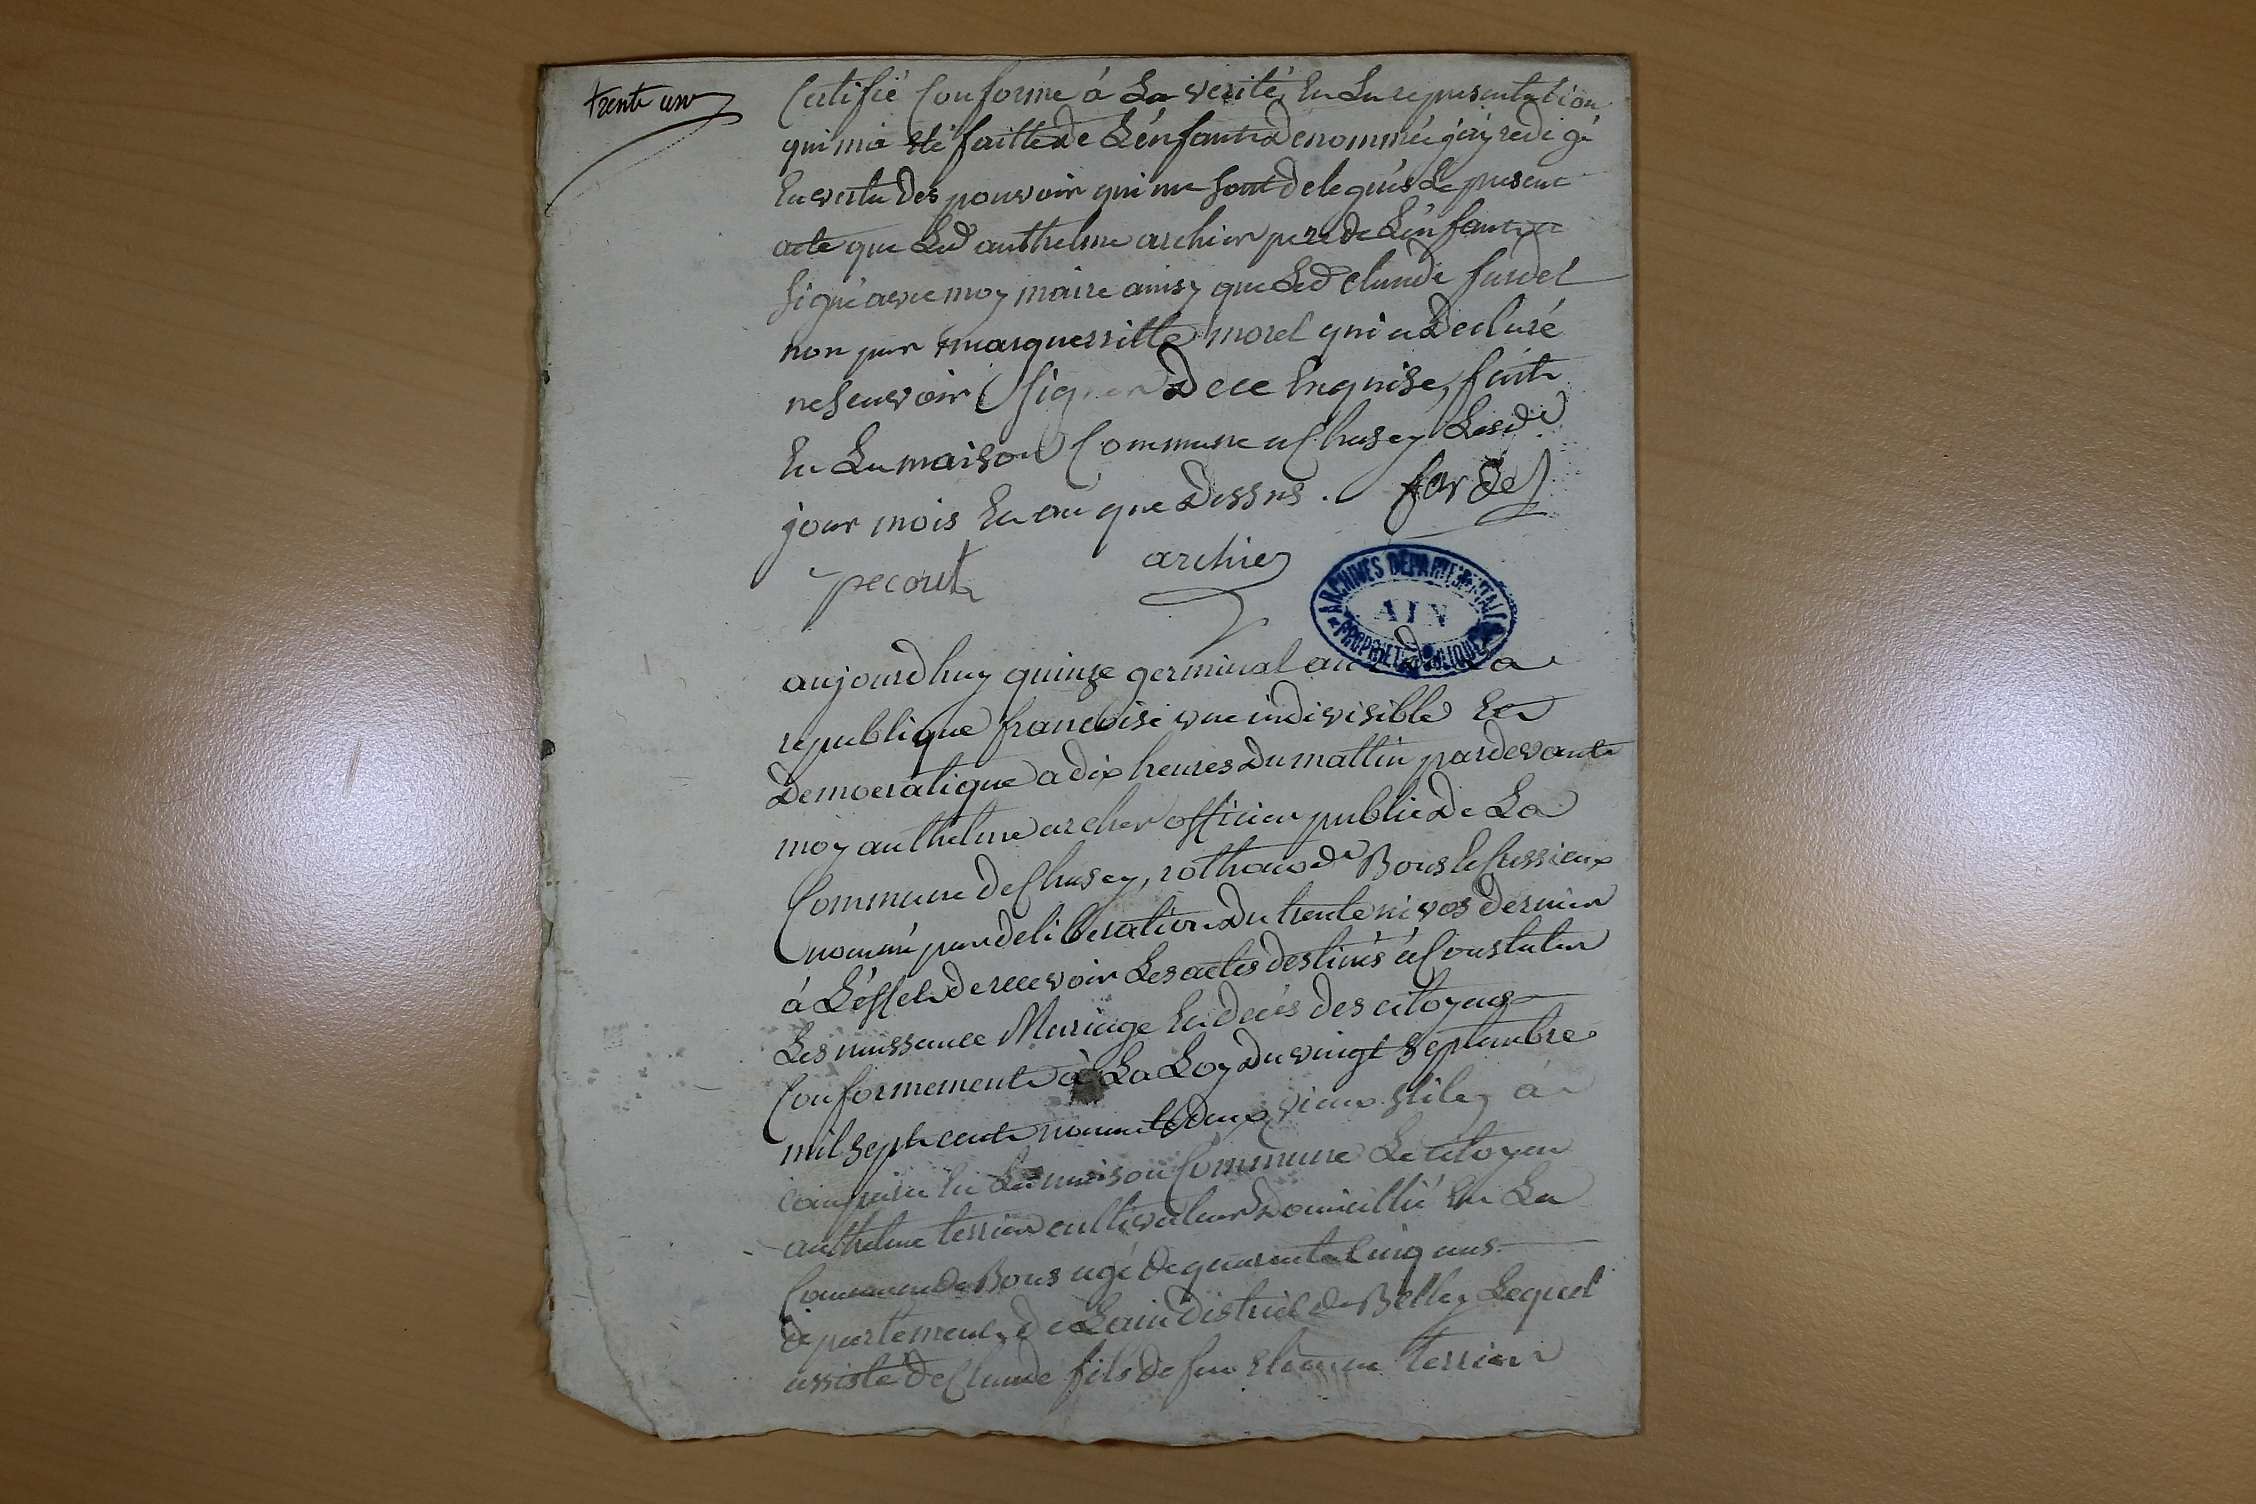 trente une
Certifié Conforme á La verité, En La representation
qui ma eté faitte de L'enfant Denommé j'ay redigé
En vertu Des pouvoir qui me sont delegués Le present
acte que Led anthelme archier pere de L'enfant a
signé avec moy maire ainsy que Led Claude fardel
non par marguerritte morel qui a Declaré
ne scavoir signer De ce Enquise, fait
En La maison Commune a Chasey Lesd
jour mois En an que Dessus. fardel
pecout archier
ARCHIVES DEPARTEMENTALES
AIN
PROPRIETE PUBLIQUE
aujourdhuy quinze germinal an de La
republique francoise une indivisible En
Democratique a dix heures Du mattin pardevant
moy anthelme archer officier public De La
Commune de Chasey, rothonod Bons et Cressieux
nommé par deliberation Du trente nivos dernier
á L'effet de recevoir Les actes destinés á Constater
Les naissance Mariage En décés des citoyens
Conformement à La Loy Du vingt septambre
mil sept cent nonante deux vieux stile, a
comparu En La maison Commune Le citoyen
anthelme terrier cultivateur Domicillié En La
Commune de Bons agé de quarante Cinq ans
département de Lain district de Belley Lequel
assisté de Claude fils de feu terrier